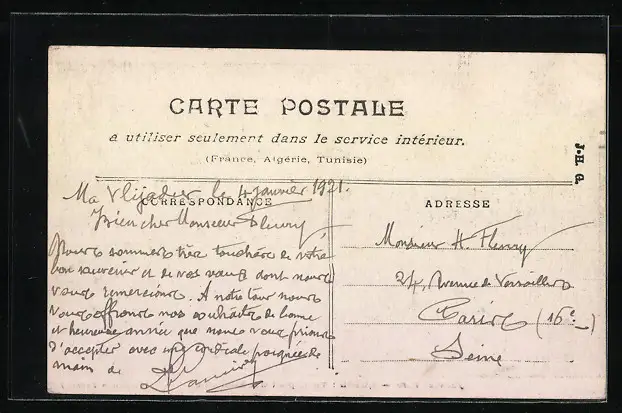 CARTE POSTALE
à utiliser seulement dans le service intérieur.
(France, Algérie, Tunisie)
J.H.G.
CORRESPONDANCE
le 4 janvier 1921.
Bien cher Monsieur Fleury,
Nous sommes très touchés de votre
bon souvenir et de vos vœux dont nous
vous remercions. A notre tour nous
vous offrons nos souhaits de bonne
et heureuse année que nous vous prions
d'accepter avec une cordiale poignée de
main de
ADRESSE
Monsieur H. Fleury
24, Avenue de Versailles
Paris (16e)
Seine